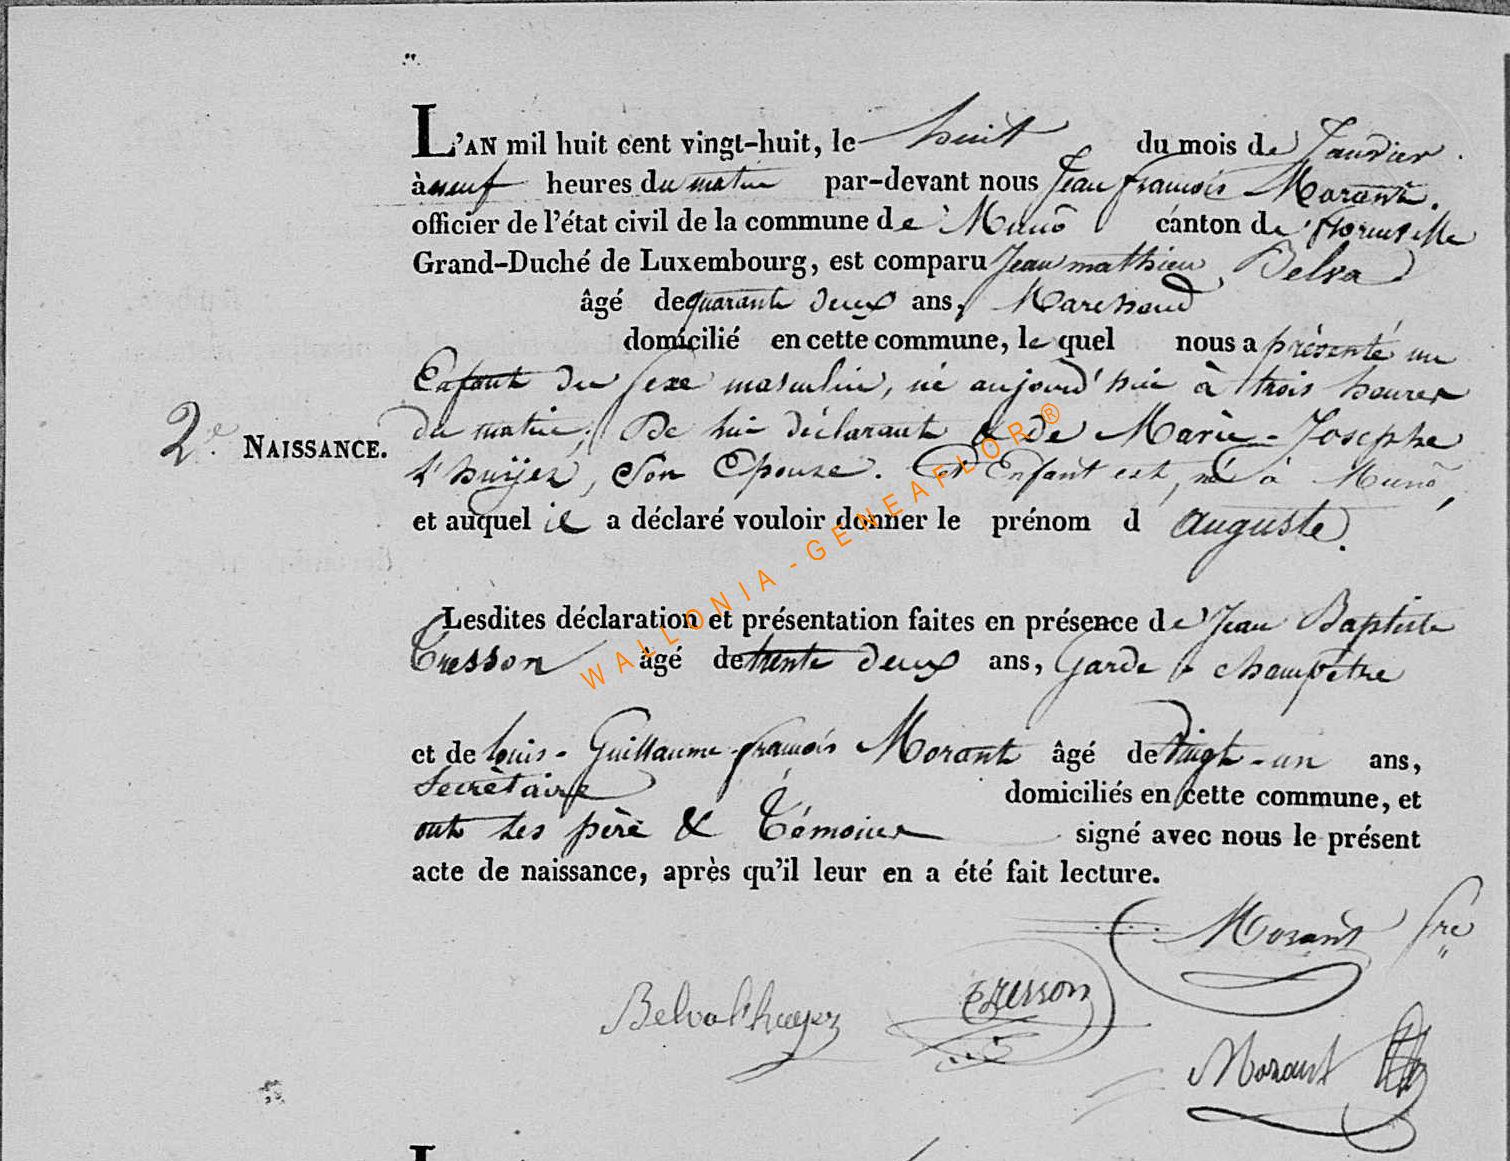 L'AN mil huit cent vingt-huit, le huit du mois de Janvier.
à neuf heures du matin par-devant nous Jean françois Morant.
officier de l'état civil de la commune de Muno canton de florenville
Grand-Duché de Luxembourg, est comparu Jean mathieu Belva
âgé de quarante deux ans, Marechaud
domicilié en cette commune, le quel nous a présenté un
Enfant du sexe masculin, né aujourd'hui à trois heures
du matin, De lui déclarant & de Marie-Josephe
2e. NAISSANCE.
l'huijer, Son Epouse. Cet Enfant est, né à Muno,
et auquel il a déclaré vouloir donner le prénom d Auguste.
WALLONIA-GENEAFLOR®
Lesdites déclaration et présentation faites en présence de Jean Baptiste
Tresson âgé de trente deux ans, Garde-champêtre
et de Louis-Guillaume-françois Morant âgé de vingt-un ans,
Secrètaire domiciliés en cette commune, et
ont les père & Témoins signé avec nous le présent
acte de naissance, après qu'il leur en a été fait lecture.
Morant fre
Belva l'huyer Tresson
Morant